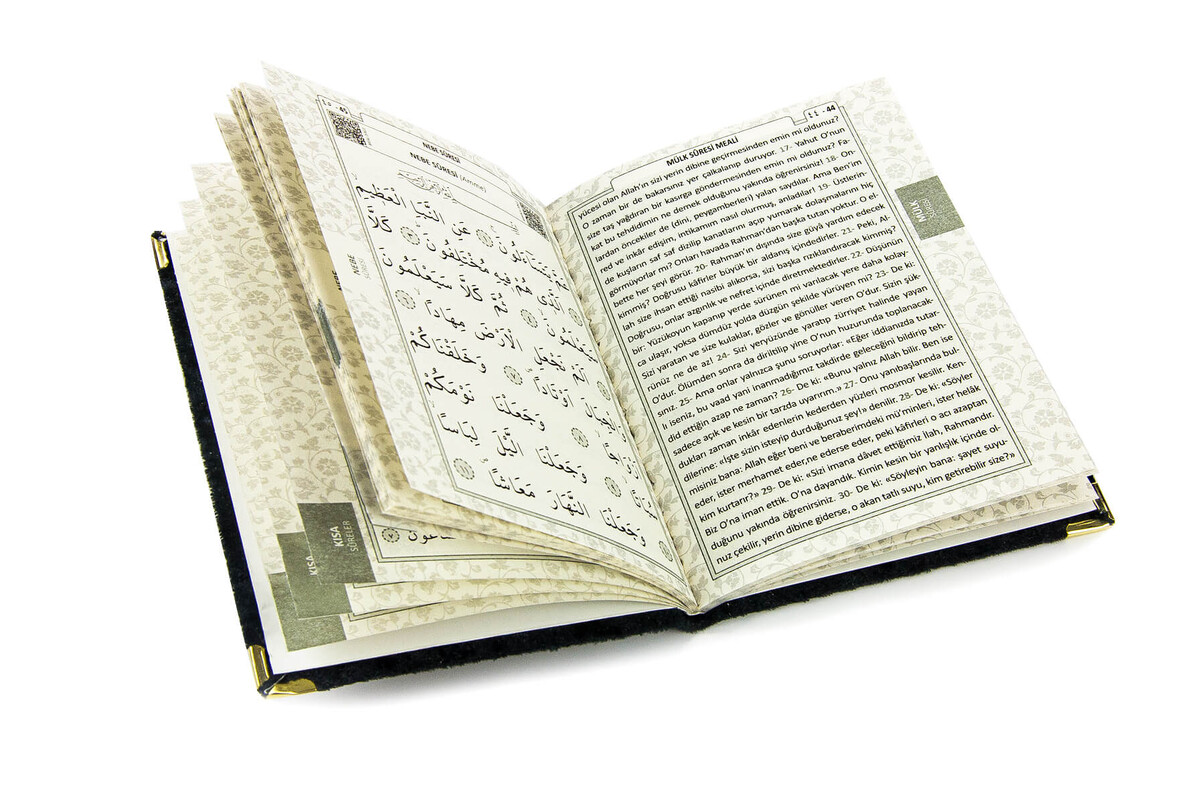 ٤٥ - 45
NEBE SÛRESİ
NEBE SÛRESİ (Amme)
عَنِ النَّبَأِ الْعَظِيمِ
عَمَّ يَتَسَاءَلُونَ
اَلَّذِي هُمْ فِيهِ مُخْتَلِفُونَ كَلَّا
ثُمَّ كَلَّا سَيَعْلَمُونَ
اَلَمْ نَجْعَلِ الْاَرْضَ مِهَاداً
اَوْتَاداً وَخَلَقْنَاكُمْ
وَجَعَلْنَا نَوْمَكُمْ
وَجَعَلْنَا الَّيْلَ لِبَاساً
وَجَعَلْنَا النَّهَارَ مَعَاشاً
NEBE
KISA
SÛRELER
KISA
٤٤ - 44
MÜLK SÛRESİ MEALİ
yücesi olan Allah'ın sizi yerin dibine geçirmesinden emin mi oldunuz?
O zaman bir de bakarsınız yer çalkalanıp duruyor. 17- Yahut O'nun
size taş yağdıran bir kasırga göndermesinden emin mi oldunuz? Fa-
kat bu tehdidimin ne demek olduğunu yakında öğrenirsiniz! 18- On-
lardan öncekiler de (dini, peygamberleri) yalan saydılar. Ama Ben'im
red ve inkâr edişim, intikamım nasıl olurmuş, anladılar! 19- Üstlerin-
de kuşların saf saf dizilip kanatlarını açıp yumarak dolaşmalarını hiç
görmüyorlar mı? Onları havada Rahman'dan başka tutan yoktur. O el-
bette her şeyi görür. 20- Rahman'ın dışında size gûyâ yardım edecek
kimmiş? Doğrusu kâfirler büyük bir aldanış içindedirler. 21- Peki, Al-
lah size ihsan ettiği nasibi alıkorsa, sizi başka rızıklandıracak kimmiş?
Doğrusu, onlar azgınlık ve nefret içinde diretmektedirler. 22- Düşünün
bir: Yüzükoyun kapanıp yerde sürünen mi varılacak yere daha kolay-
ca ulaşır, yoksa dümdüz yolda düzgün şekilde yürüyen mi? 23- De ki:
Sizi yaratan ve size kulaklar, gözler ve gönüller veren O'dur. Sizin şük-
rünüz ne de az! 24- Sizi yeryüzünde yaratıp zürriyet halinde yayan
O'dur. Ölümden sonra da diriltilip yine O'nun huzurunda toplanacak-
sınız. 25- Ama onlar yalnızca şunu soruyorlar: «Eğer iddianızda tutar-
lı iseniz, bu vaad yani inanmadığımız takdirde geleceğini bildirip teh-
did ettiğin azap ne zaman? 26- De ki: «Bunu yalnız Allah bilir. Ben ise
sadece açık ve kesin bir tarzda uyarırım.» 27- Onu yanıbaşlarında bul-
dukları zaman inkâr edenlerin kederden yüzleri mosmor kesilir. Ken-
dilerine: «İşte sizin isteyip durduğunuz şey!» denilir. 28- De ki: «Söyler
misiniz bana: Allah eğer beni ve beraberimdeki mü'minleri, ister helâk
eder, ister merhamet eder,ne ederse eder, peki kâfirleri o acı azaptan
kim kurtarır?» 29- De ki: «Sizi imana dâvet ettiğimiz ilah, Rahmandır.
Biz O'na iman ettik. O'na dayandık. Kimin kesin bir yanlışlık içinde ol-
duğunu yakında öğrenirsiniz. 30- De ki: «Söyleyin bana: şayet suyu-
nuz çekilir, yerin dibine giderse, o akan tatlı suyu, kim getirebilir size?»
MÜLK
Sûresi